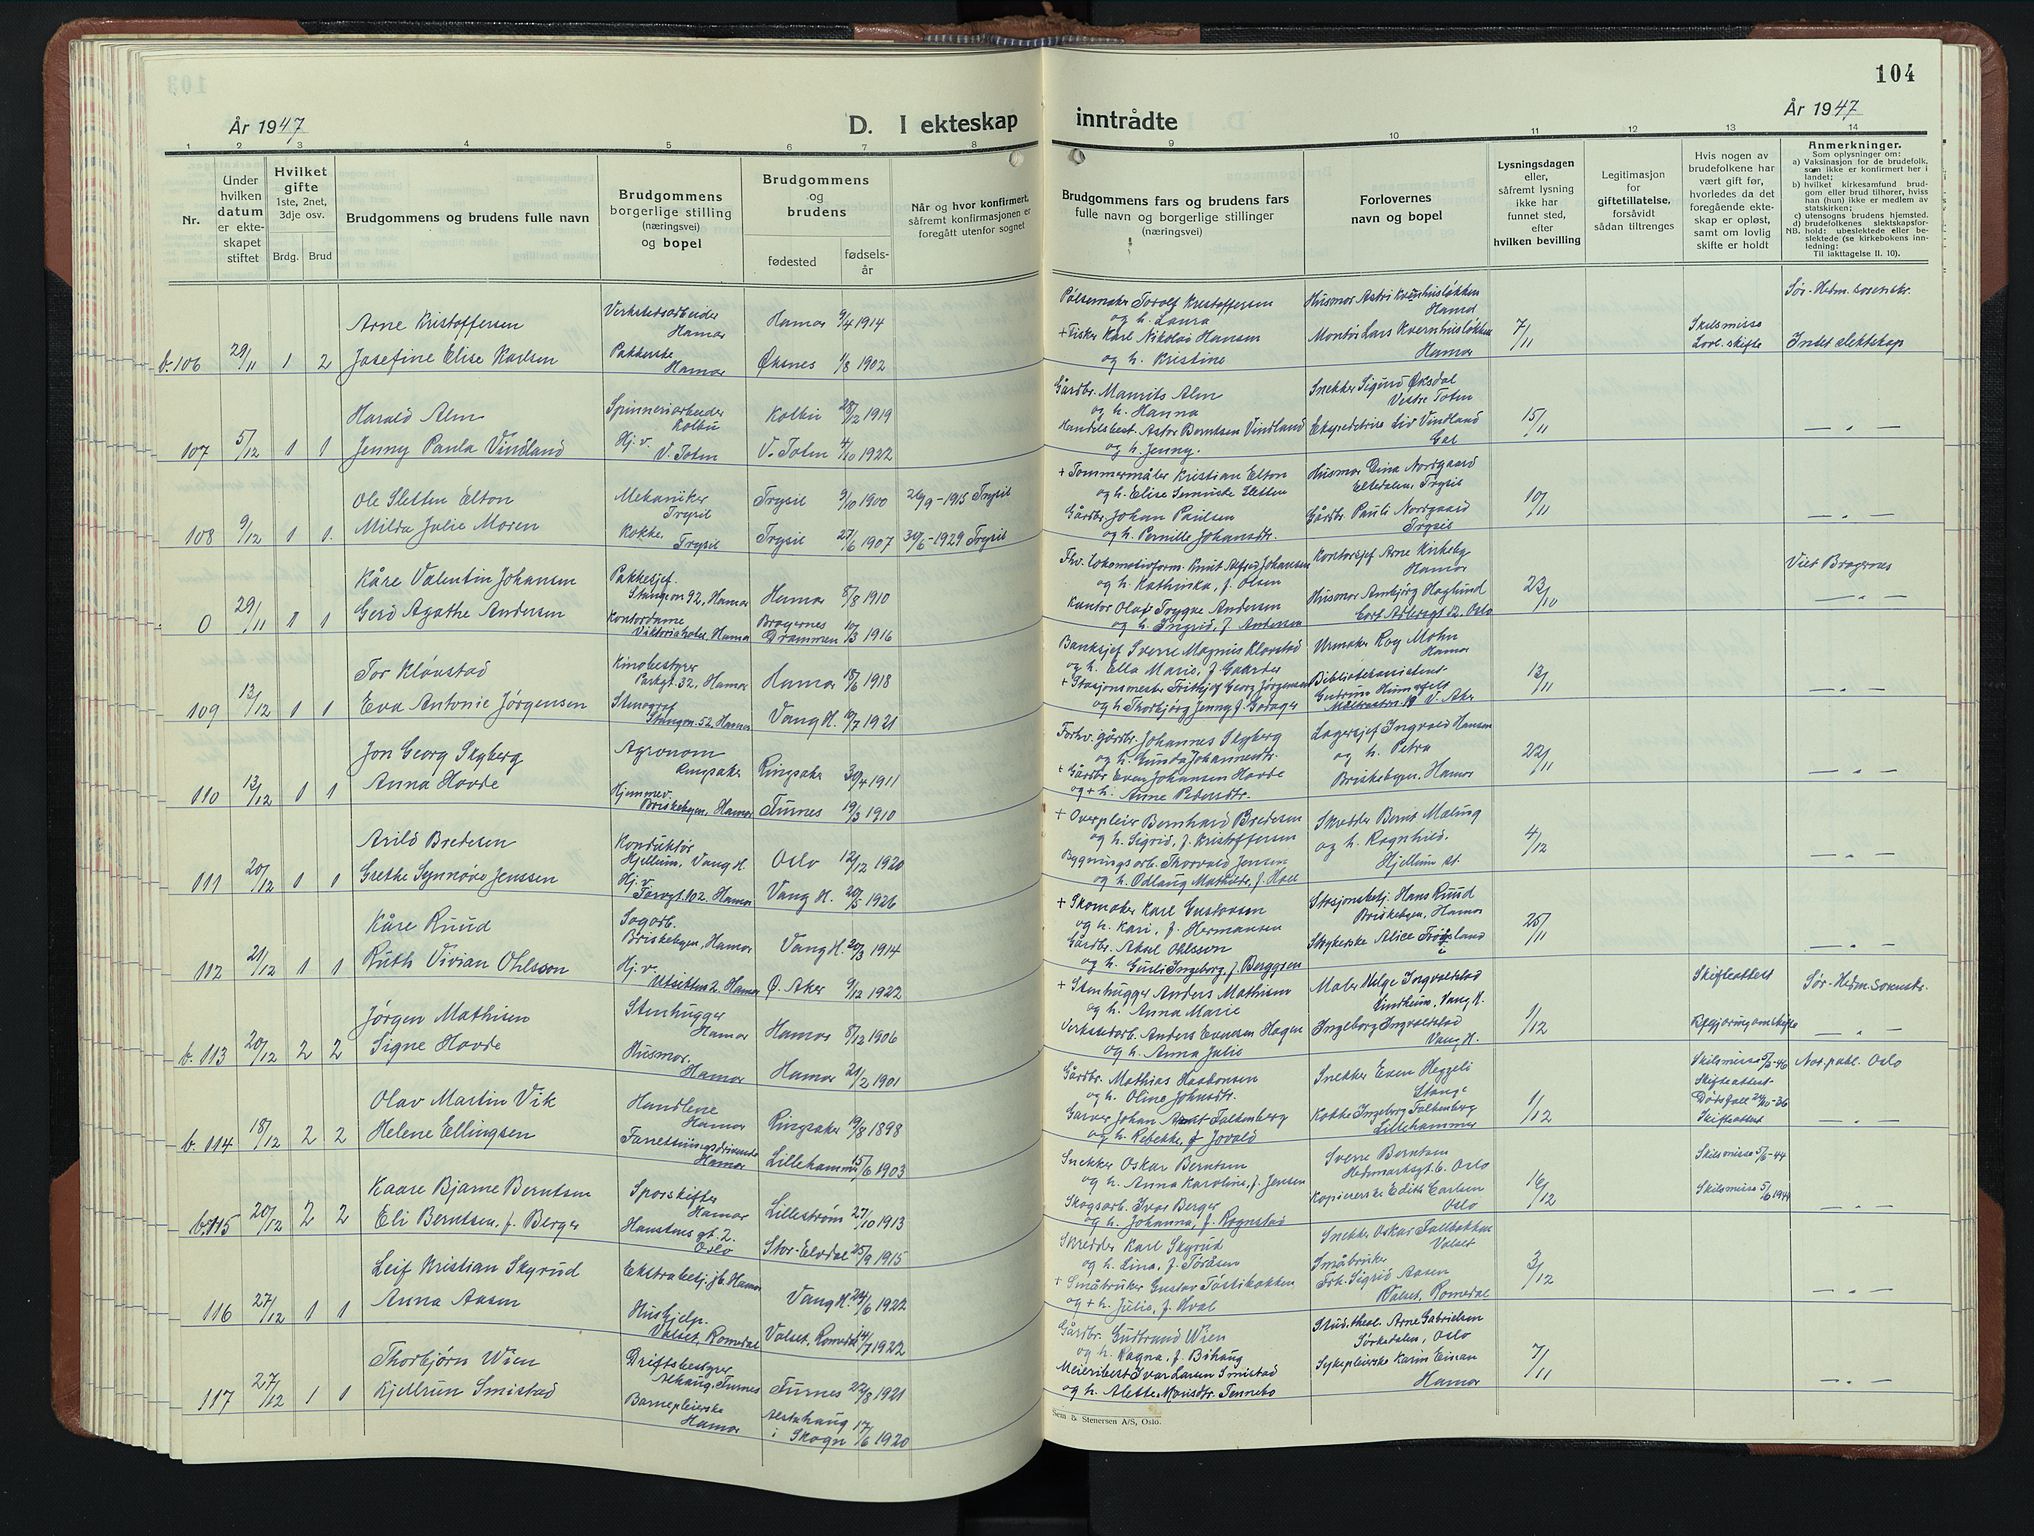 104
År 1947
D. I ekteskap inntrådte
År 1947
1 2 3 4 5 6 7 8 9 10 11 12 13 14
Nr.
Under hvilken datum er ekteskapet stiftet
Hvilket gifte 1ste, 2net, 3dje osv.
Brdg. Brud
Brudgommens og brudens fulle navn
Brudgommens borgerlige stilling (næringsvei) og bopel
Brudgommens og brudens
fødested
fødselsår
Når og hvor konfirmert, såfremt konfirmasjonen er foregått utenfor sognet
Brudgommens fars og brudens fars fulle navn og borgerlige stillinger (næringsvei)
Forlovernes navn og bopel
Lysningsdagen eller, såfremt lysning ikke har funnet sted, efter hvilken bevilling
Legitimasjon for giftetillatelse, forsåvidt sådan tiltrenges
Hvis nogen av brudefolkene har vært gift før, hvorledes da det foregående ekteskap er opløst, samt om lovlig skifte er holdt
Anmerkninger.
Som oplysninger om:
a) Vaksinasjon for de brudefolk, som ikke er konfirmert her i landet;
b) hvilket kirkesamfund brudgom eller brud tilhører, hviss han (hun) ikke er medlem av statskirken;
c) utensogns brudens hjemsted.
d) brudefolkenes slektskapsforhold: ubeslektede eller beslektede (se kirkebokens innledning:
NB. Til iakttagelse II. 10).
b. 106 29/11 1 2
Arne Kristoffersen Verkstedsarbeider Hamar Hamar 9/4 1914
Josefine Elise Karlsen Pakkerske Hamar Øksnes 1/8 1902
Pølsemaker Torolf Kristoffersen og h. Laura
+ Fisker Karl Nikolai Hansen og h. Kristine
Husmor Astri Kvernhusløkken Hamar
Montør Lars Kvernhusløkken Hamar
7/11
Skilsmisse
Lovl. skifte
Sør-Hedm. sorenskr.
Intet slektskap
107 5/12 1 1
Harald Alm Spinneriarbeider Kolbu Kolbu 28/12 1919
Jenny Paula Vindland Hj. v. V. Toten V. Toten 4/10 1922
Gårdbr. Maurits Alm og h. Hanna
Handelsbest. Astor Berntsen Vindland og h. Jenny.
Snekker Sigurd Øksdal Vestre Toten
Ekspeditrise Liv Vindland
15/11
— " —
108 9/12 1 1
Ole Sletten Elton Mekaniker Trysil Trysil 9/10 1900 26/9-1915 Trysil
Milda Julie Moren Kokke Trysil Trysil 27/6 1907 30/6-1929 Trysil
+ Tømmermåler Kristian Elton og h. Elise Sletten
Gårdbr. Johan Paulsen og h. Pernille Johansdtr.
Husmor Gina Nordgaard Eltedalen, Trysil
Gårdbr. Pauli Nordgaard Trysil
10/11
— " —
0 29/11 1 1
Kåre Valentin Johansen Pakksjef. Stangev 92, Hamar Hamar 8/8 1910
Gerd Agathe Andersen Kontordame Viktoriahotel, Hamar Bragernes Drammen 10/3 1916
Fhv. lokomotivform. Knut Alfred Johansen og h. Kathinka, f. Olsen
Kantor Olaf Trygve Andersen og h. Ingrid, f. Andersen
Kontorsjef Arne Kirkeby Hamar
Husmor Annbjørg Haglund Oslo
23/10
Viet Bragernes
— " —
109 13/12 1 1
Tor Kløvstad Kinobestyrer Parkgt. 32, Hamar Hamar 18/6 1918
Eva Antonie Jørgensen Stenograf Stangev. 52, Hamar Vang H. 10/7 1921
Banksjef Sverre Magnus Kløvstad og h. Ella Marie, f. Gaarder
+ Stasjonsmester Fridtjof Georg Jørgensen og h. Thorbjørg Jenny f. Godager
Urmaker Roy Mohn Hamar
Biblioteksassistent Gudrun V. Aker
13/11
— " —
110 13/12 1 1
Jon Georg Skyberg Agronom Ringsaker Ringsaker 30/4 1911
Anna Hovde Hjemmev. Briskebyen, Hamar Furnes 19/3 1910
Forhv. gårdbr. Johannes Skyberg og h. Gunda Johannesdtr.
+ Gårdbr. Even Johansen Hovde og + h. Anne Pedersdtr.
Lagersjef Ingvald Hansen og h. Petra
Briskebyen, Hamar
22/11
— " —
111 20/12 1 1
Arild Bredesen Konduktør Hjellum, Vang H. Oslo 12/12 1920
Grethe Synnøve Jenssen Hj. v. Torvgt. 102, Hamar Vang H. 20/5 1926
+ Overpleier Bernhard Bredesen og h. Sigrid, f. Kristoffersen
Bygningsarb. Thorvald Jensen og h. Odlaug Mathilde, f. Hoel
Skredder Bernt Maling og h. Ragnhild, Hjellum st.
4/12
— " —
112 21/12 1 1
Kåre Ruud Sagarb. Briskebyen, Hamar Vang H. 20/3 1914
Ruth Vivian Ohlsson Hj. v. Utsikten 2, Hamar Ø. Aker 9/12 1922
+ Skomaker Karl Gustavsen og h. Kari, f. Hermansen
Gårdbr. Axel Ohlsson og h. Gurli Ingeborg, f. Berggren
Stasjonsbetj. Hans Ruud Briskebyen, Hamar
Strykerske Alice
25/11
— " —
b. 113 20/12 2 2
Jørgen Mathisen Stenhugger Hamar Hamar 8/12 1906
Signe Hovde Husmor Hamar Hamar 21/2 1901
+ Stenhugger Anders Mathisen og h. Anna Marie
Verkstedarb. Anders Evensen Hagen og h. Anna Julie
Maler Helge Ingvaldstad Lindheim, Vang H.
Ingeborg Ingvaldstad Vang H.
1/12
Skifteattest
Begjæring om skifte
Sør-Hedm. sorenskr.
— " —
b. 114 18/12 2 2
Olav Martin Vik Handlende Hamar Ringsaker 19/8 1898
Helene Ellingsen Forretningsdrivende Hamar Lillehammer 15/6 1903
Gårdbr. Mathias Haakonsen og h. Oline Johnsdtr.
Garver Johan Falkenberg og h. Rebekke, f. Jovald
Snekker Even Heggeli Stange
Kokke Ingeborg Falkenberg Lillehammer
1/12
Skilsmisse 5/2-46
Skifteattest
Dødsfall 24/10-36
Skifteattest
Nor. pakl. Oslo
— " —
b. 115 20/12 2 2
Kaare Bjarne Berntsen Sporskifter Hamar Lillestrøm 27/10 1913
Eli Berntsen, f. Berger Hanstens gt. 2. Oslo Stor-Elvdal 25/9 1915
Snekker Oskar Berntsen og h. Anna Karoline, f. Jensen
Skogsarb. Ivar Berger og h. Johanna, f. Rognstad
Sverre Berntsen Hedmarksgt. 6. Oslo
Kopiererske Edith Carlsen Oslo
16/12
Skilsmisse 5/6-44
Skilsmisse 5/6 1944
— " —
116 27/12 1 1
Leif Kristian Skyrud Ekstrabetj. jb. Hamar Vang H. 24/6 1922
Anna Aasen Hushjelp. Valset, Romedal Valset, Romedal 14/7 1922
Skredder Karl Skyrud og h. Lina, f. Toråsen
+ Småbruker Gustav Tostibakken og + h. Julie, f. Hval
Snekker Oskar Fallbakken Valset
Småbruker
Frk. Sigrid Aasen Valset, Romedal
3/12
— " —
117 27/12 1 1
Thorbjørn Wien Driftsbestyrer Alhaug, Furnes Furnes 22/8 1921
Kjellrun Smistad Barnepleierske Hamar Alstahaug i Skogn 17/6 1920
Gårdbr. Gudbrand Wien og h. Ragna, f. Bihaug
Meieribest Ivar Larsen Smistad og h. Alette Monsdtr. Tennebo
Stud. theol. Arne Gabrielsen Sørkedalen, Oslo
Sykepleierske Karin Einan Hamar
7/11
— " —
Sem & Stenersen A/S, Oslo.